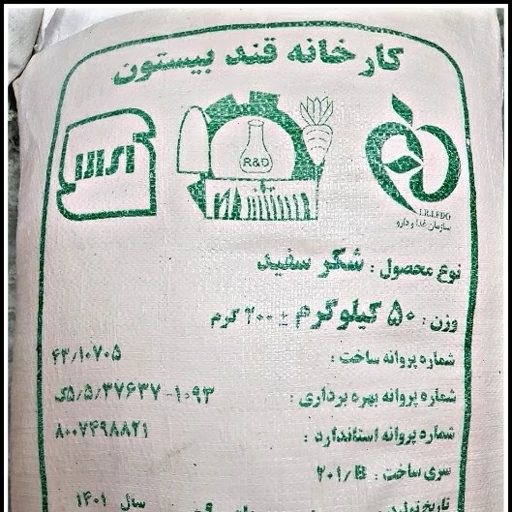 کارخانه قند بیستون
R&D
I.R.I.FDO
سازمان غذا و دارو
نوع محصول : شکر سفید
وزن : ۵۰ کیلوگرم ± ۲۰۰ گرم
شماره پروانه ساخت : ۴۳/۱۰۷۰۵
شماره پروانه بهره برداری : ۵/۵/۳۷۶۳۷-۱۰۹۳ک
شماره پروانه استاندارد : ۸۰۰۷۴۹۸۸۲۱
سری ساخت : ۲۰۱/B
تاریخ تولید سال ۱۴۰۱